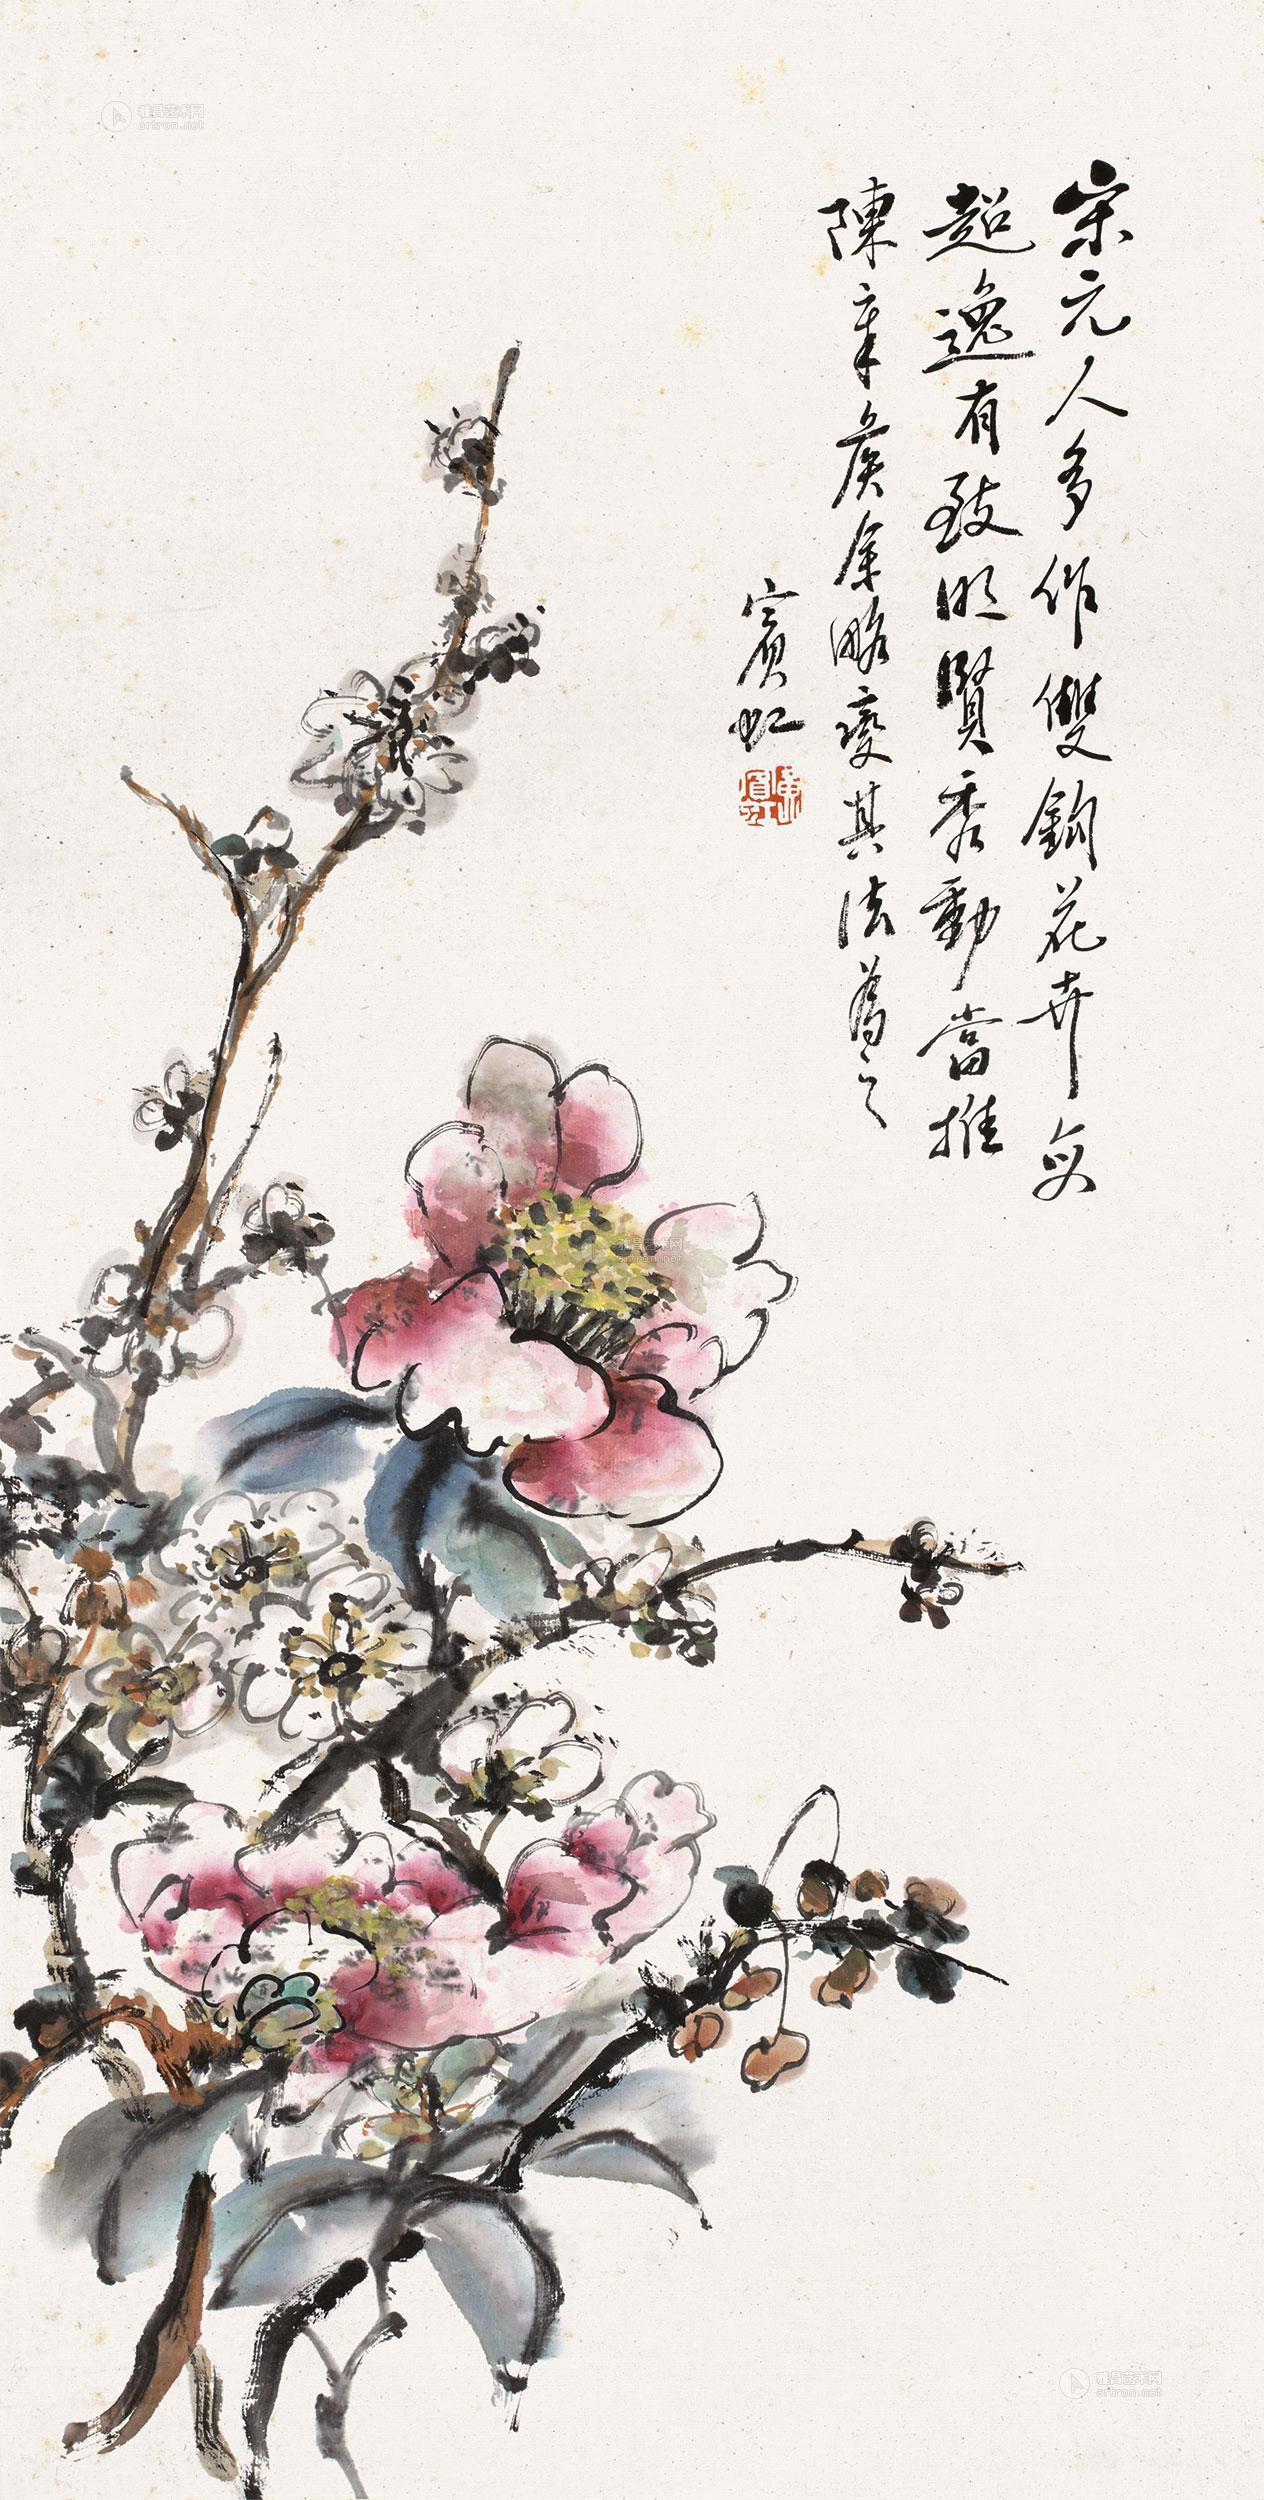 宋元人多作雙鉤花卉奕
超逸有致明賢秀動當推
陳章侯余略變其法為之
賓虹
黃賓虹
雅昌艺术网
artron.net
雅昌艺术网
artron.net
雅昌艺术网
artron.net